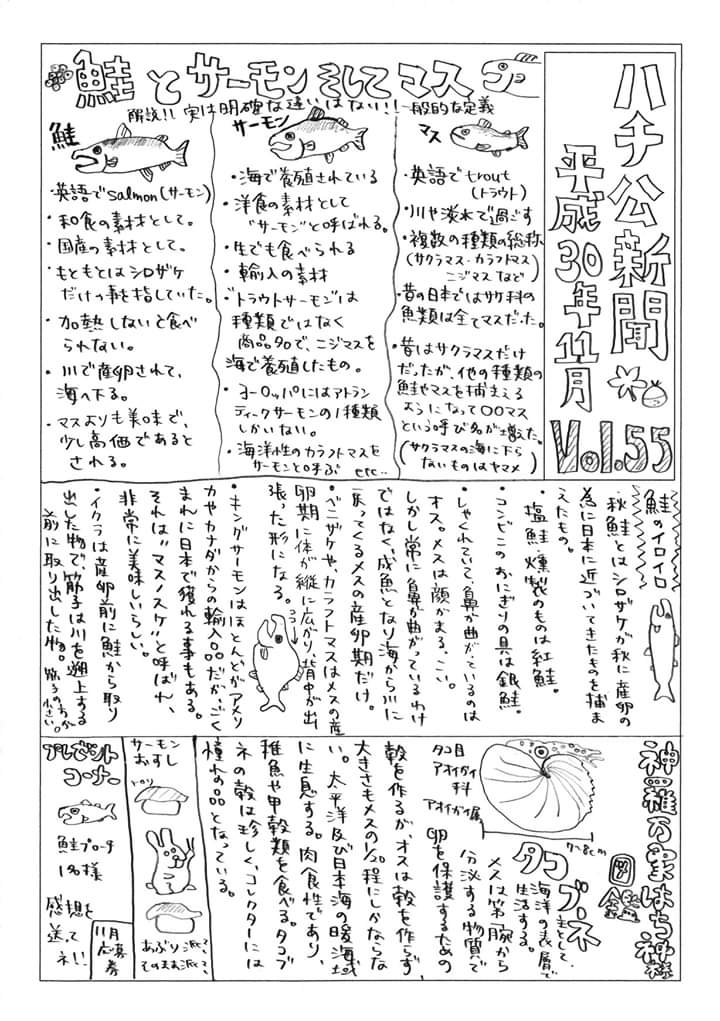 ハチ公新聞
平成30年11月
Vol.55
鮭とサーモンそしてマス
解説!! 実は明確な違いはない!! 一般的な定義
鮭
・英語でsalmon(サーモン)
・和食の素材として。
・国産の素材として。
・もともとはシロザケ
だけの事を指していた。
・加熱しないと食べ
られない。
・川で産卵されて、
海へ下る。
・マスよりも美味で、
少し高価であると
される。
サーモン
・海で養殖されている
・洋食の素材として
"サーモン"と呼ばれる。
・生でも食べられる
・輸入の素材
・トラウトサーモンは
種類ではなく
商品名で、ニジマスを
海で養殖したもの。
・ヨーロッパにはアトラン
ティックサーモンの1種類
しかいない。
・海洋性のカラフトマスを
サーモンと呼ぶ etc…
マス
・英語でtrout
(トラウト)
・川や淡水で過ごす
・複数の種類の総称
(サクラマス・カラフトマス
ニジマスなど)
・昔の日本ではサケ科の
魚類は全てマスだった。
・昔はサクラマスだけ
だったが、他の種類の
鮭やマスを捕まえる
ようになって〇〇マス
という呼び名が増えた。
(サクラマスの海に下ら
ないものはヤマメ)
鮭のイロイロ
・秋鮭とはシロザケが秋に産卵の
為に日本に近づいてきたものを捕ま
えたもの。
・塩鮭・燻製のものは紅鮭。
・コンビニのおにぎりの具は銀鮭。
・しゃくれていて、鼻が曲がっているのは
オス。メスは顔がまるっこい。
しかし常に鼻が曲がっているわけ
ではなく、成魚となり海から川に
戻ってくるメスの産卵期だけ。
・ベニザケや、カラフトマスはメスの産
卵期に体が縦に広がり、背中が出
張った形になる。
・キングサーモンはほとんどがアメリ
カやカナダからの輸入品だが、ごく
まれに日本で獲れる事もある。
それは"マスノスケ"と呼ばれ、
非常に美味しいらしい。
・イクラは産卵前に鮭から取り
出した物で、筋子は川を遡上する
前に取り出した物。筋子の方が
小さい。
神羅万象はち神様
タコブネ
主として、
海洋の表層で
生活する。
メスは第一腕から
分泌する物質で
卵を保護するための
殻を作るが、オスは殻を作らず、
大きさもメスの1/20程にしかならな
い。太平洋及び日本海の暖海域
に生息する。肉食性であり、
稚魚や甲殻類を食べる。タコブ
ネの殻は珍しく、コレクターには
憧れの品となっている。
タコ目
アオイガイ
科
アオイガイ属
7~8cm
サーモン
おすし
トロリ
あぶり派?、
そのまま派?、
プレゼント
コーナー
鮭ブローチ
1名様
感想を
送って
ネ!!
11月
応募
券